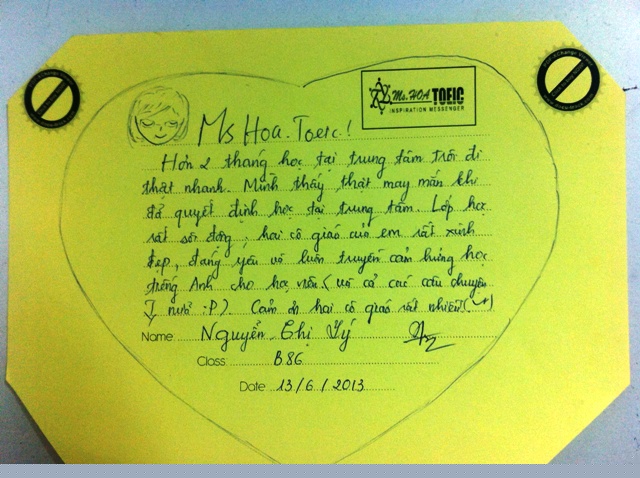 Ms. HOA TOEIC
INSPIRATION MESSENGER
Ms Hoa. Toeic!
Hơn 2 tháng học tại trung tâm trôi đi
thật nhanh. Mình thấy thật may mắn khi
đã quyết định học tại trung tâm. Lớp học
rất sôi động, hai cô giáo của em rất xinh
đẹp, đáng yêu và luôn truyền cảm hứng học
tiếng Anh cho học viên. (với cả các câu chuyện
nữa :P). Cảm ơn hai cô giáo rất nhiều!
Name Nguyễn Thị Lý
Class: B86
Date 13/6/2013